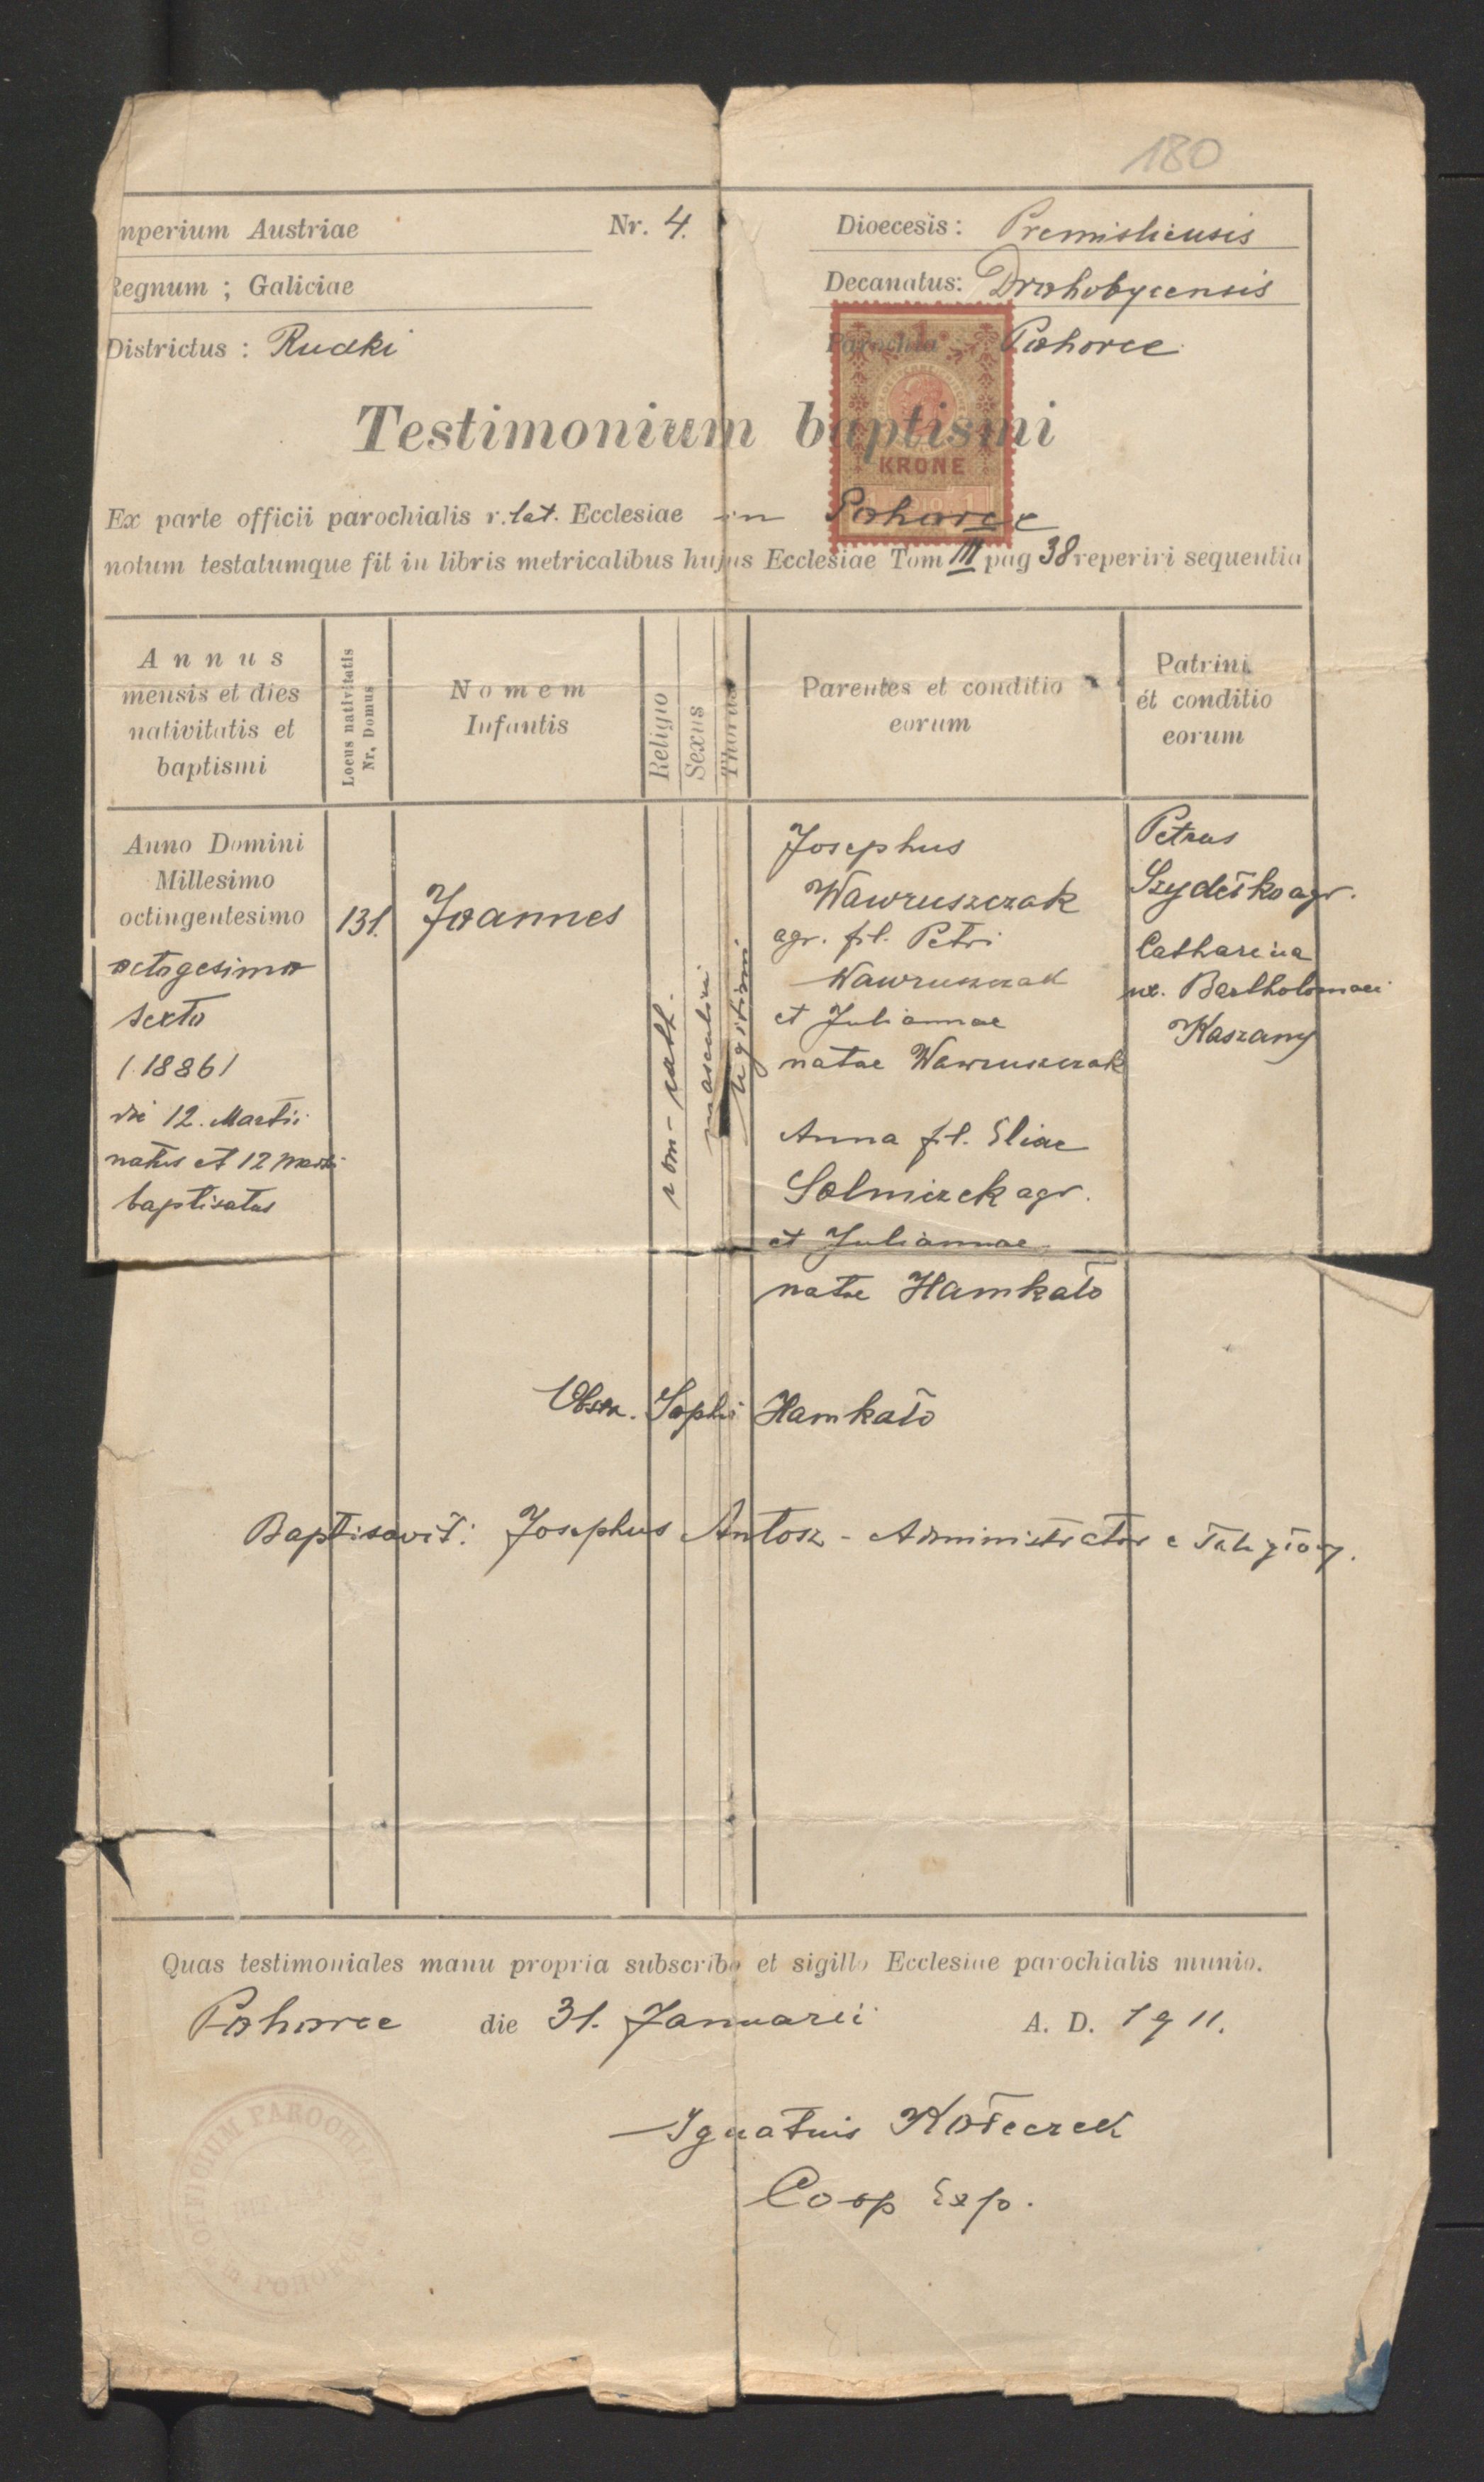 180
mperium Austriae
Nr. 4.
Dioecesis: Premisliensis
Regnum ; Galiciae
Decanatus: Drohobycensis
Districtus : Rudki
Parochia Pohorce
Testimonium baptismi
KRONE
Ex parte officii parochialis r. lat. Ecclesiae in Pohorce
notum testatumque fit in libris metricalibus hujus Ecclesiae Tom III pag 38 reperiri sequentia
Annus
mensis et dies
nativitatis et
baptismi
Locus nativitatis
Nr. Domus
Nomem
Infantis
Religio
Sexus
Thorus
Parentes et conditio
eorum
Patrini
et conditio
eorum
Anno Domini
Millesimo
octingentesimo
octogesimo
sexto
/1886/
die 12. Martii
natus et 12 Martii
baptisatus
131.
Joannes
rom-cath.
masculini
legitimi
Josephus
Wawruszczak
agr. fil. Petri
Wawruszczak
et Juliannae
natae Wawruszczak
Anna fil. Eliae
Solmiczek agr.
et Juliannae
natae Hamkało
Petrus
Szydełko agr.
Catharina
ux. Bartholomaei
Kaszany
Obstr. Sophi Hamkało
Baptisavit: Josephus Antosz - Administrator e
Quas testimoniales manu propria subscribo et sigillo Ecclesiae parochialis munio.
Pohorce die 31. Januarii A. D. 1911.
Ignatius Kołeczek
Coop Exp.
OFFICIUM PAROCHIALE
in POHORCE